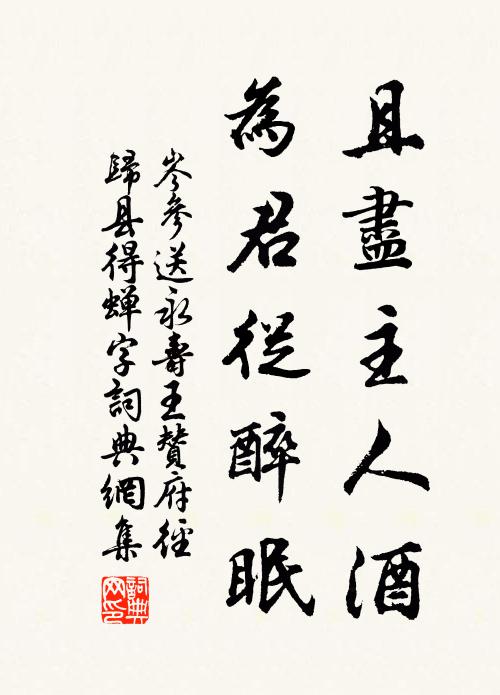 且盡主人酒
為君從醉眠
岑參送永壽王贊府徑
歸县得蝉字詞典網集
詞典网印